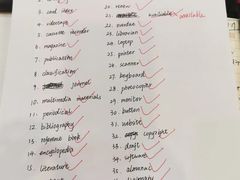 2. card index
4. videotape
5. cassette recorder
6. magazine
7. publication
8. classification
9. journal
10. multimedia materials
11. periodical
12. bibliography
13. reference book
14. encyclopedia
15. literature
20. renew
21. available available
22. overdue
23. librarian
24. laptop
25. printer
26. scanner
27. keyboard
28. photocopier
29. monitor
30. button
31. website
32. copyright
33. draft
34. software
35. almanac